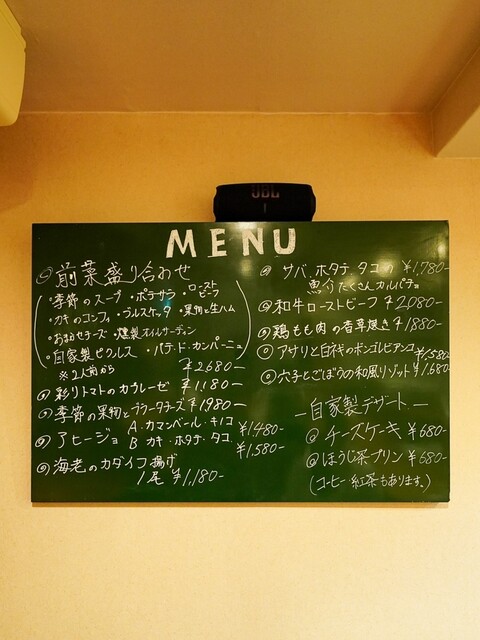 JBL
MENU
前菜盛り合わせ
・季節のスープ ・ポテサラ ・ローストビーフ
・カキのコンフィ ・ブルスケッタ ・果物と生ハム
・おまかせチーズ ・燻製オイルサーディン
・自家製ピクルス ・パテ・ド・カンパーニュ
※2人前から ¥2680-
彩りトマトのカプレーゼ ¥1,180-
季節の果物とブラータチーズ ¥1980-
アヒージョ A カマンベール・キノコ ¥1,480-
B カキ・ホタテ・タコ ¥1,580-
海老のカダイフ揚げ
1尾 ¥1,180-
サバ、ホタテ、タコの ¥1,780-
魚介たくさんカルパチョ
和牛ローストビーフ ¥2080-
鶏もも肉の香草焼き ¥1880-
アサリと白ネギのボンゴレビアンコ ¥1,580-
穴子とごぼうの和風リゾット ¥1,680-
—自家製デザート—
チーズケーキ ¥680-
ほうじ茶プリン ¥680-
(コーヒー・紅茶もあります。)